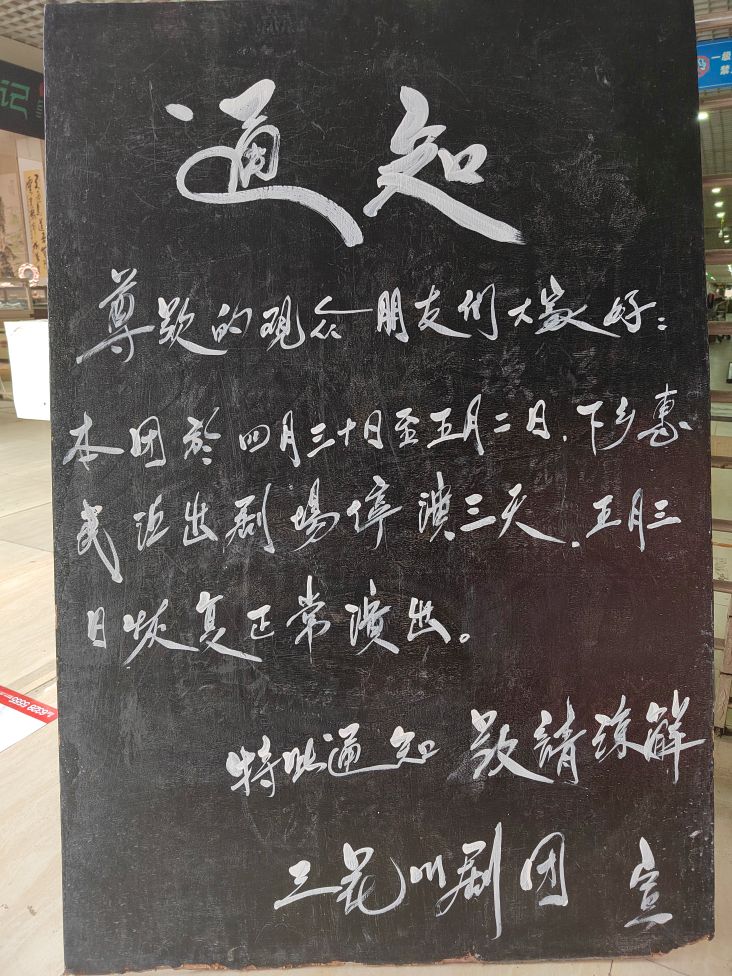 通知
尊敬的观众朋友们大家好：
本团於四月三十日至五月二日，下乡惠
民演出剧場停演三天，五月三
日恢复正常演出。
特此通知 敬請諒解
三花川剧团 宣
记
一级
禁